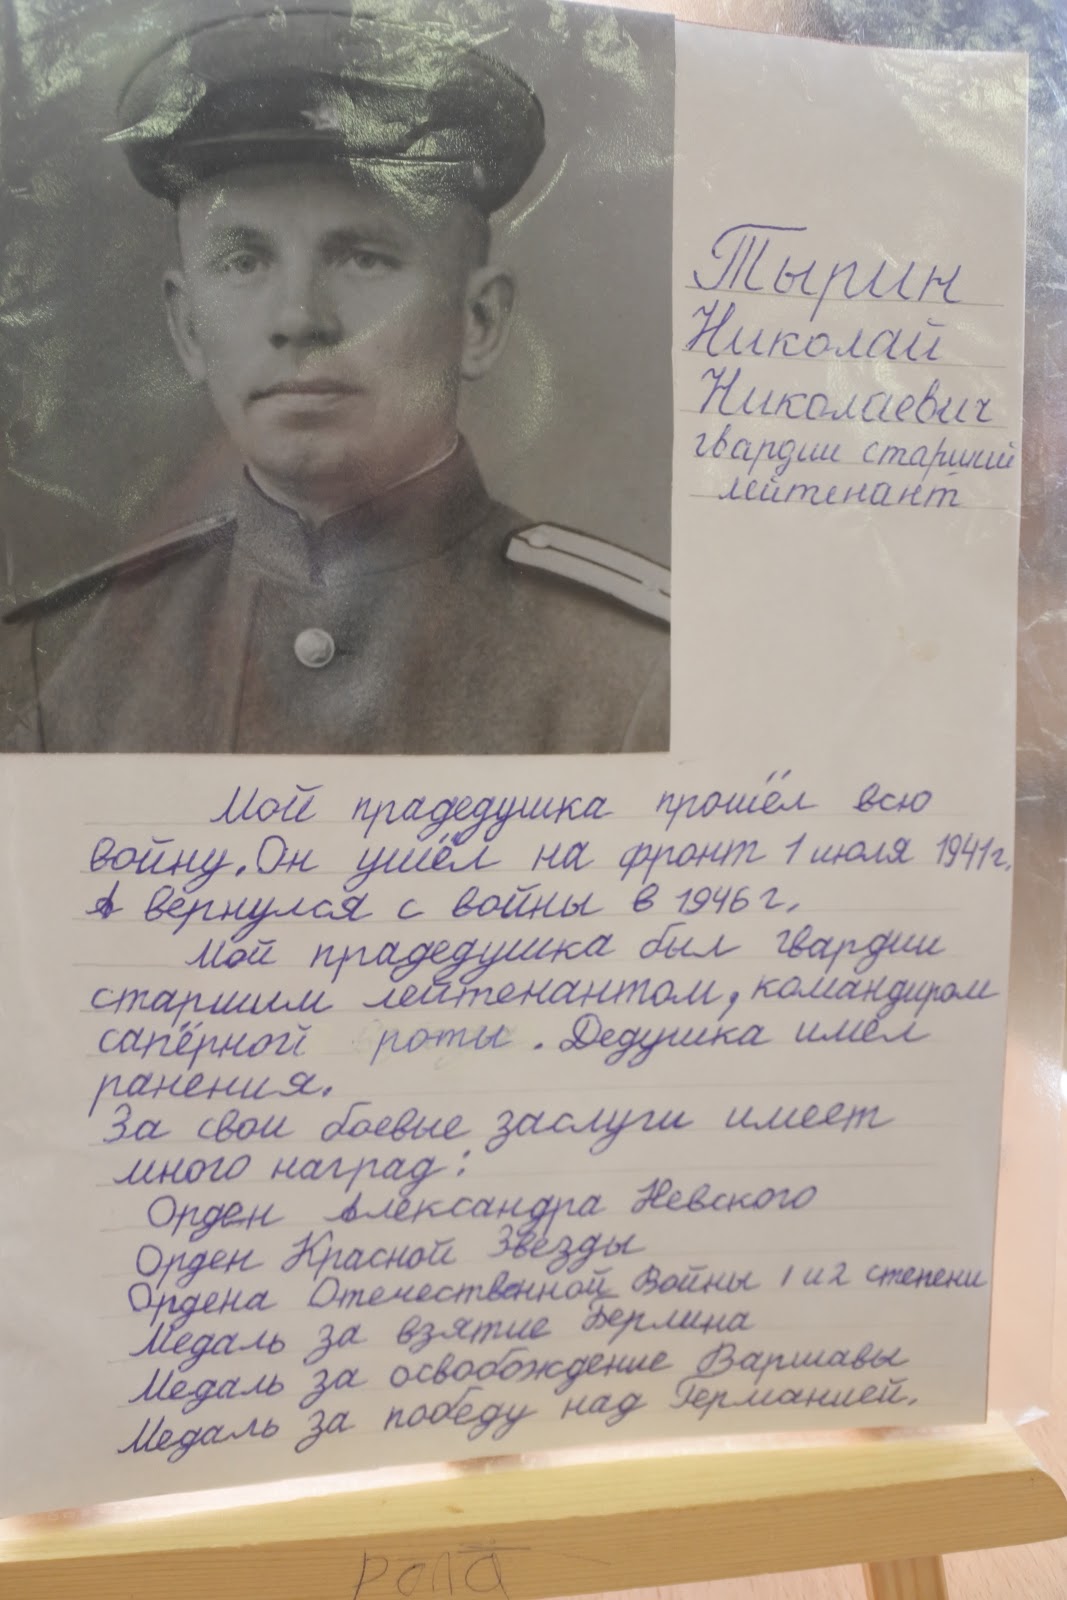 Тырин
Николай
Николаевич
гвардии старший
лейтенант
Мой прадедушка прошёл всю
войну. Он ушёл на фронт 1 июля 1941г.
А вернулся с войны в 1946г.
Мой прадедушка был гвардии
старшим лейтенантом, командиром
сапёрной роты. Дедушка имел
ранения.
За свои боевые заслуги имеет
много наград:
Орден Александра Невского
Орден Красной Звезды
Ордена Отечественной Войны 1 и 2 степени
Медаль за взятие Берлина
Медаль за освобождение Варшавы
Медаль за победу над Германией.